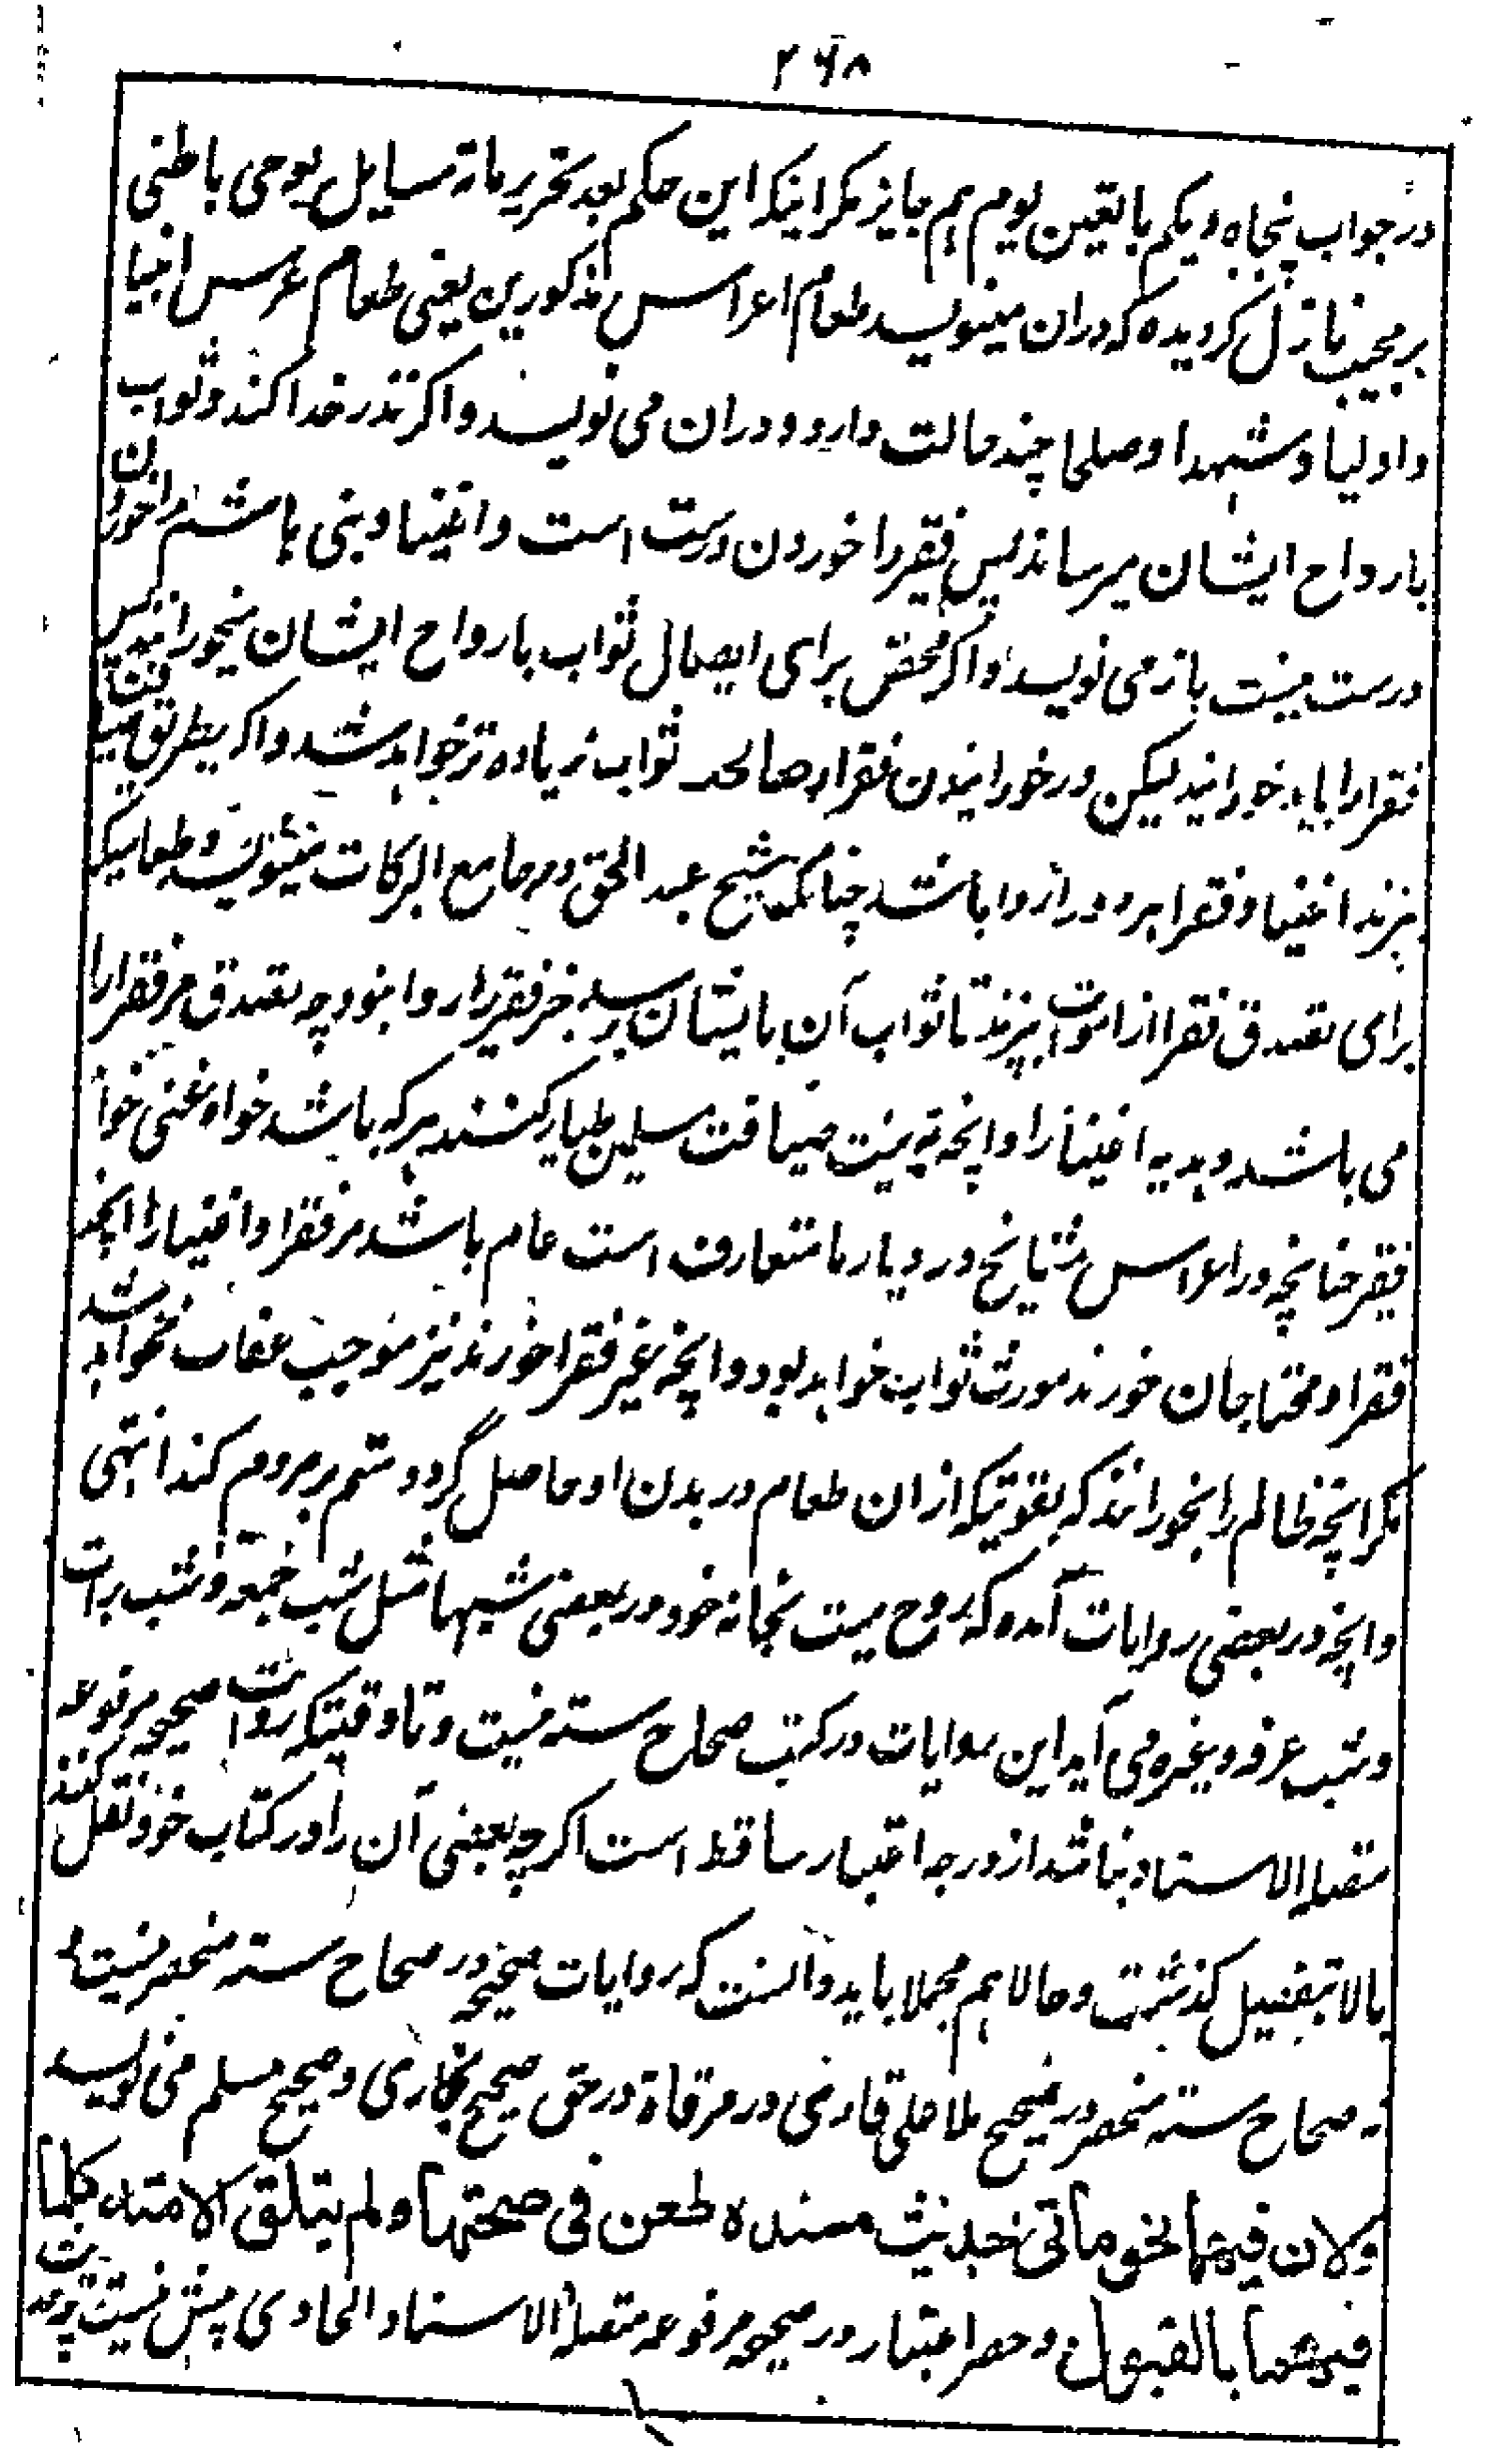 ۲۶۸
در جواب پنجاه و یکم با تعین یوم هم جایز مکر اینکه این حکم بعد تحریر مائة مسایل بوحی باطنی
بر مجیب نازل کردیده که دران مینویسد طعام اعراس مذکورین یعنی طعام عرس انبیا
و اولیا و شهدا و صلحا چند حالت دارد و دران می نویسد و اکر نذر خدا کند و ثواب
بارواح ایشان برساند پس فقیر را خوردن درست است و اغنیا و بنی هاشم را خوردن
درست نیست باز می نویسد و اکر محض برای ایصال ثواب بارواح ایشان بخورانند پس
فقرا را باید خورانید لیکن در خورانیدن فقراء صالحه ثواب زیاده تر خواهد شد و اکر بطریق ضیافت
بپزند اغنیا و فقرا هر دو را روا باشد چنانکه شیخ عبد الحق در جامع البرکات مینویسد و طعامیکه
برای تصدق فقرا از اموات بپزند تا ثواب آن بایشان برسد جز فقیر را روا نبود چه تصدق مر فقرا را
می باشد و هدیه اغنیا را و انچه به نیت ضیافت مسلمین طیار کنند هر که باشد خواه غنی خواه
فقیر چنانچه در اعراس مشایخ در دیار ما متعارف است عام باشد مر فقرا و اغنیا را انچه
فقرا و محتاجان خورند مورث ثواب خواهد بود و انچه غیر فقرا خورند نیز موجب عقاب نخواهد شد
مکر انچه ظالم را بخورانند که بقوتیکه ازان طعام در بدن او حاصل گردد ستم بر مردم کند انتهی
و انچه در بعضی روایات آمده که روح میت بخانه خود در بعضی شبها مثل شب جمعه و شب برات
و شب عرفه و غیره می آید این روایات در کتب صحاح سته نیست و تا وقتیکه روایت صحیحه مرفوعه
متصلة الاسناد نباشد از درجه اعتبار ساقط است اکرچه بعضی آن را در کتاب خود نقل کنند
بالا بتفصیل کذشت و حالا هم مجملا باید دانست که روایات صحیحه در صحاح سته منحصر نیست و
نه صحاح سته منحصر در صحیح ملا علی قاری در مرقاة در حق صحیح بخاری و صحیح مسلم می نویسد
ولان فیهما نحو ماتی حدیث مسنده طعن فی صحتها ولم یتلق الامة کلما
فیهما بالقبول و حصر اعتبار در صحیحه مرفوعه متصلة الاسناد الحادی پیش نیست